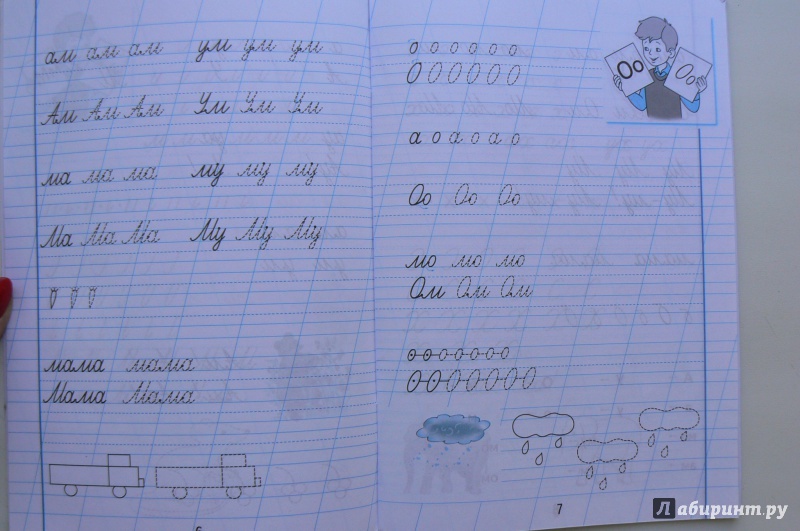 ам ам ам ум ум ум
Ам Ам Ам Ум Ум Ум
ма ма ма му му му
Ма Ма Ма Му Му Му
мама мама
Мама Мама
6
о о о о о о
О О О О О О
Оо Оо
а о а о а о
Оо Оо Оо
мо мо мо
Ом Ом Ом
о о о о о о о
О О О О О О О
7
Лабиринт.ру